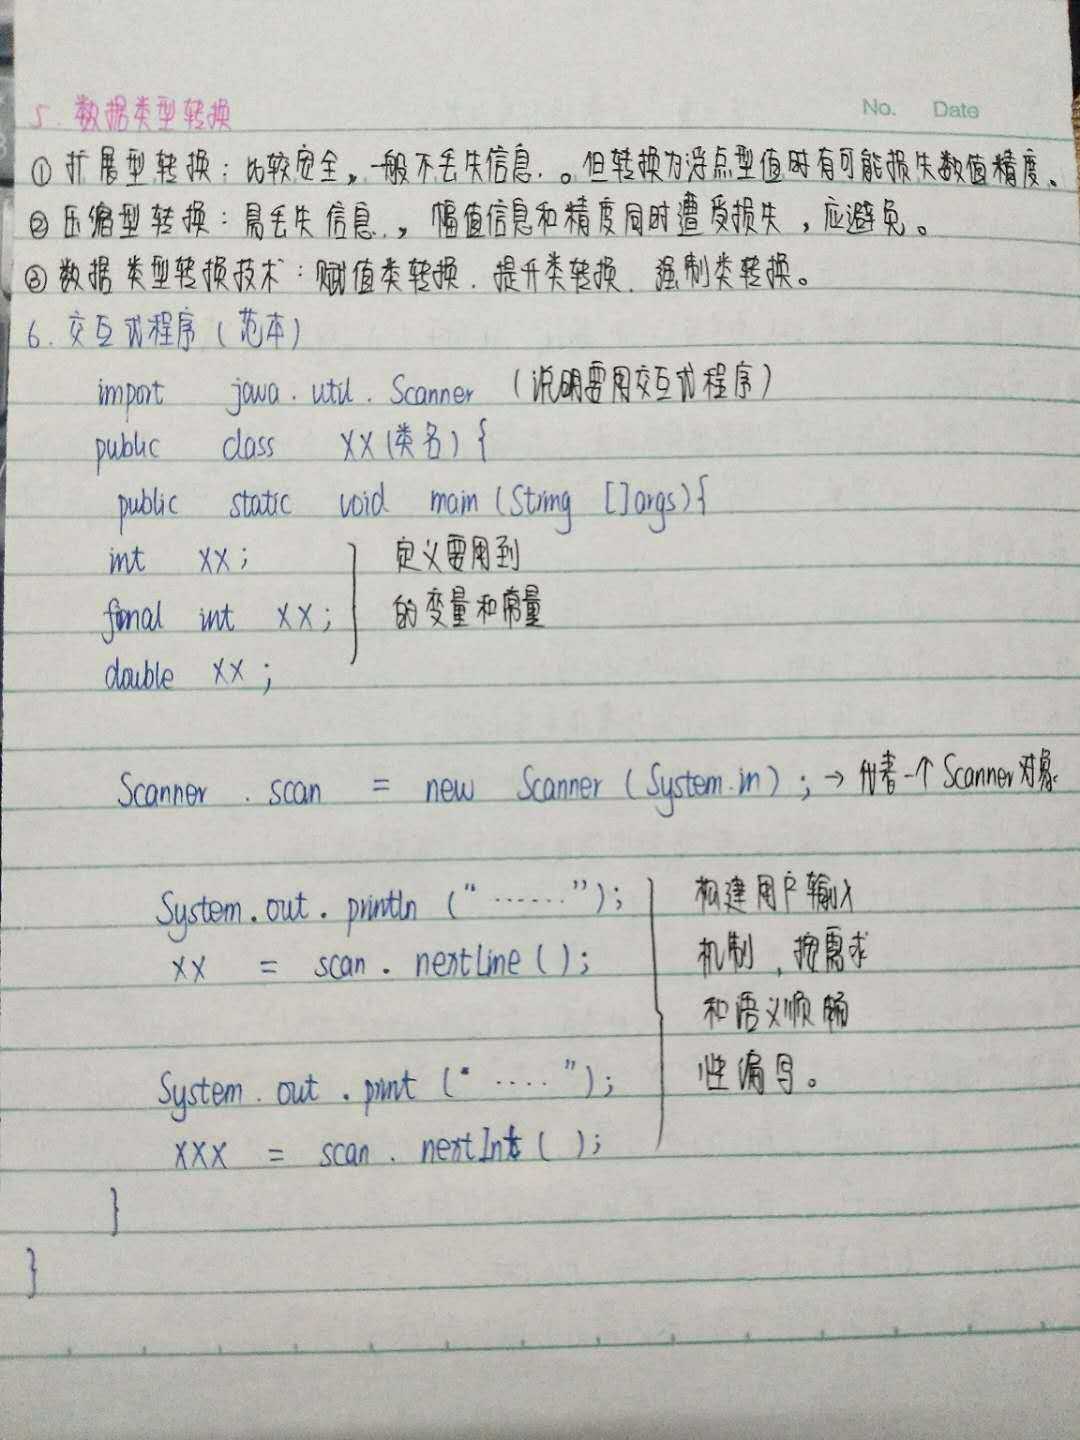 No. Date
5. 数据类型转换
① 扩展型转换：比较安全，一般不丢失信息.。但转换为浮点型值时有可能损失数值精度。
② 压缩型转换：易丢失信息.，幅值信息和精度同时遭受损失，应避免。
③ 数据类型转换技术：赋值类转换. 提升类转换. 强制类转换。
6. 交互式程序（范本）
import java.util.Scanner （说明要用交互式程序）
public class XX(类名) {
public static void main (String []args){
int XX; 定义要用到
final int XX; 的变量和常量
double XX;
Scanner . scan = new Scanner (System.in) ; → 代表一个 Scanner对象.
System.out.println ("······"); 构建用户输入
XX = scan.nextLine ( ); 机制，按需求
和语义顺畅
System.out.print ("····"); 性编写。
XXX = scan.nextInt ( );
}
}